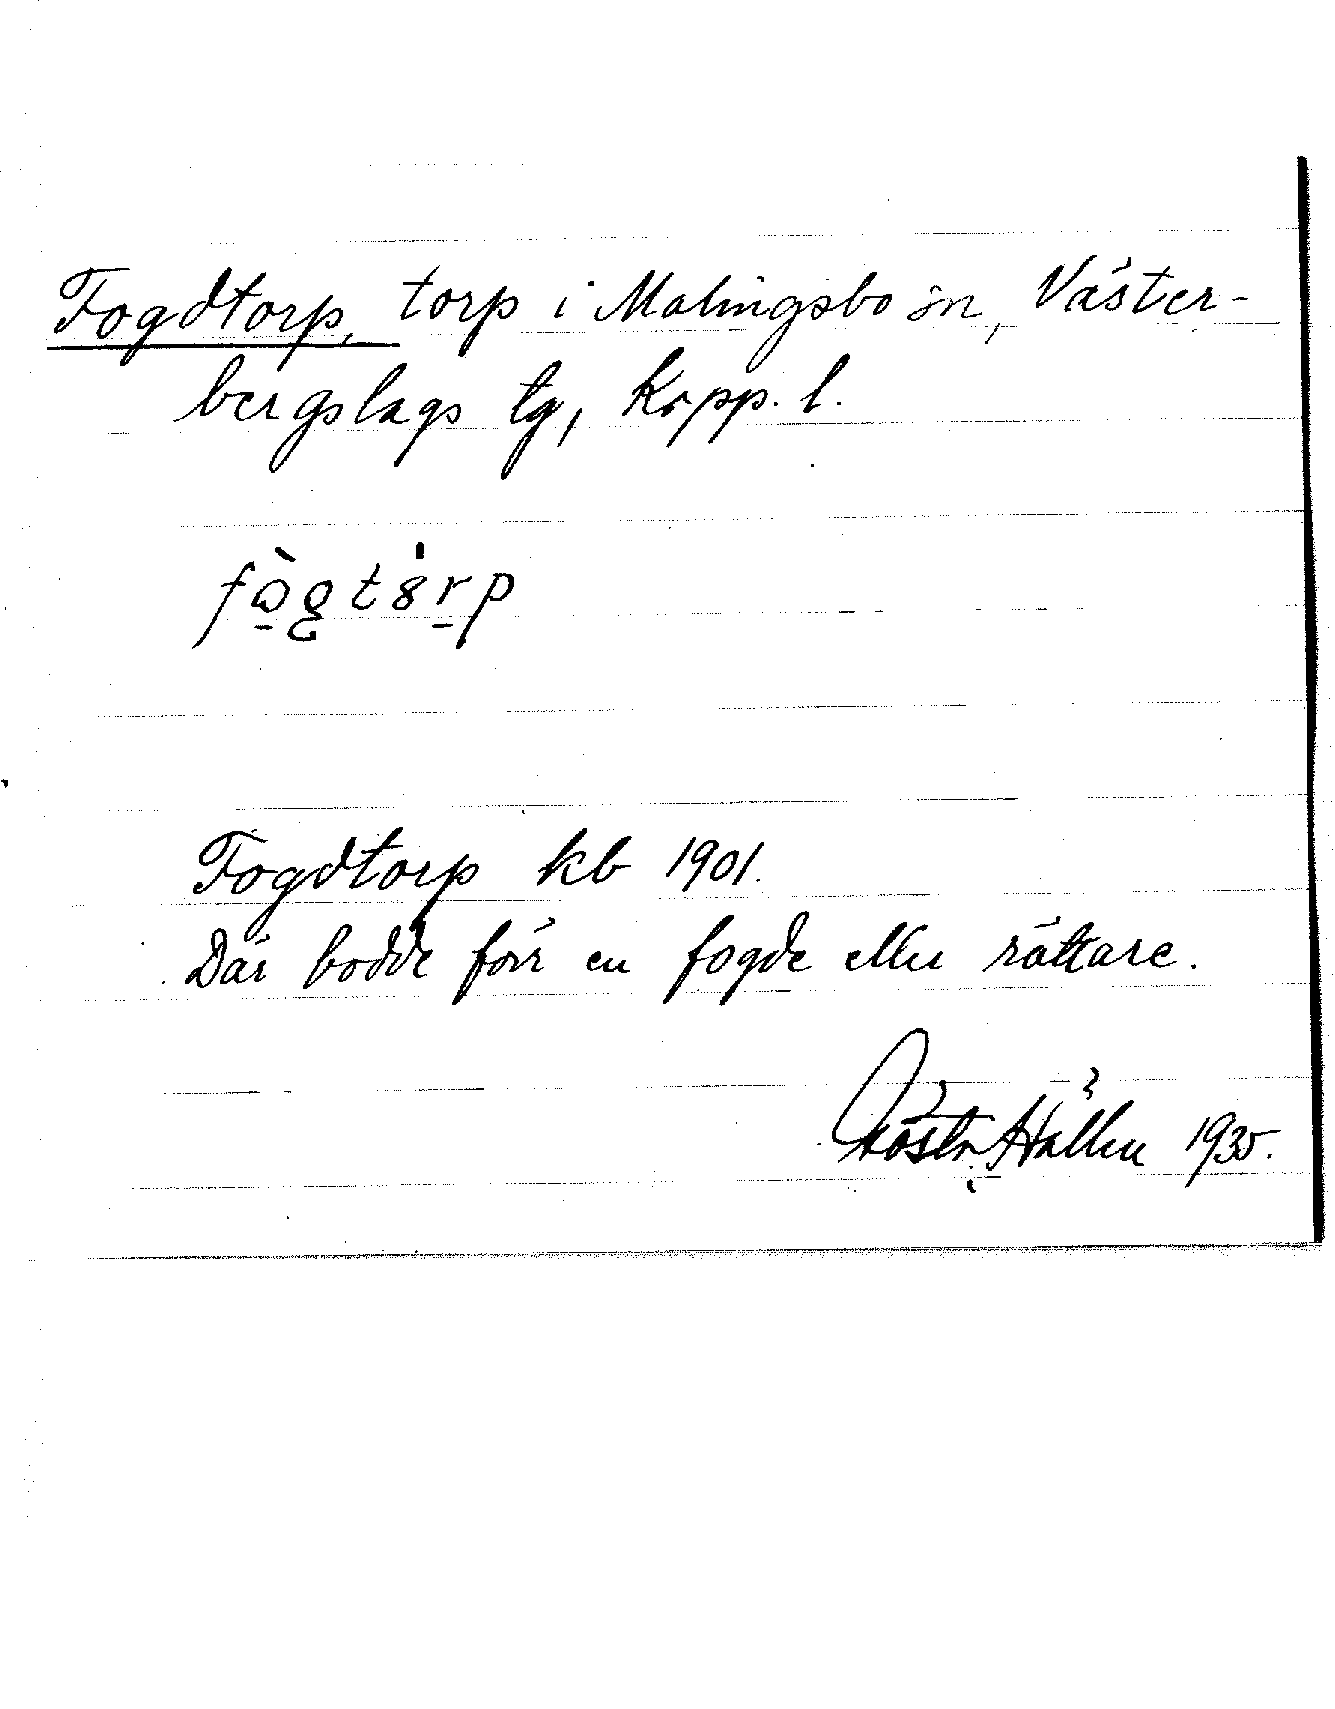 Fogdtorp, torp i Malingsbo sn, Väster-
bergslags tg, Kopp. l.
Fogdtorp kb 1901.
Där bodde förr en fogde eller rättare.
Gösta Hällen 1935.